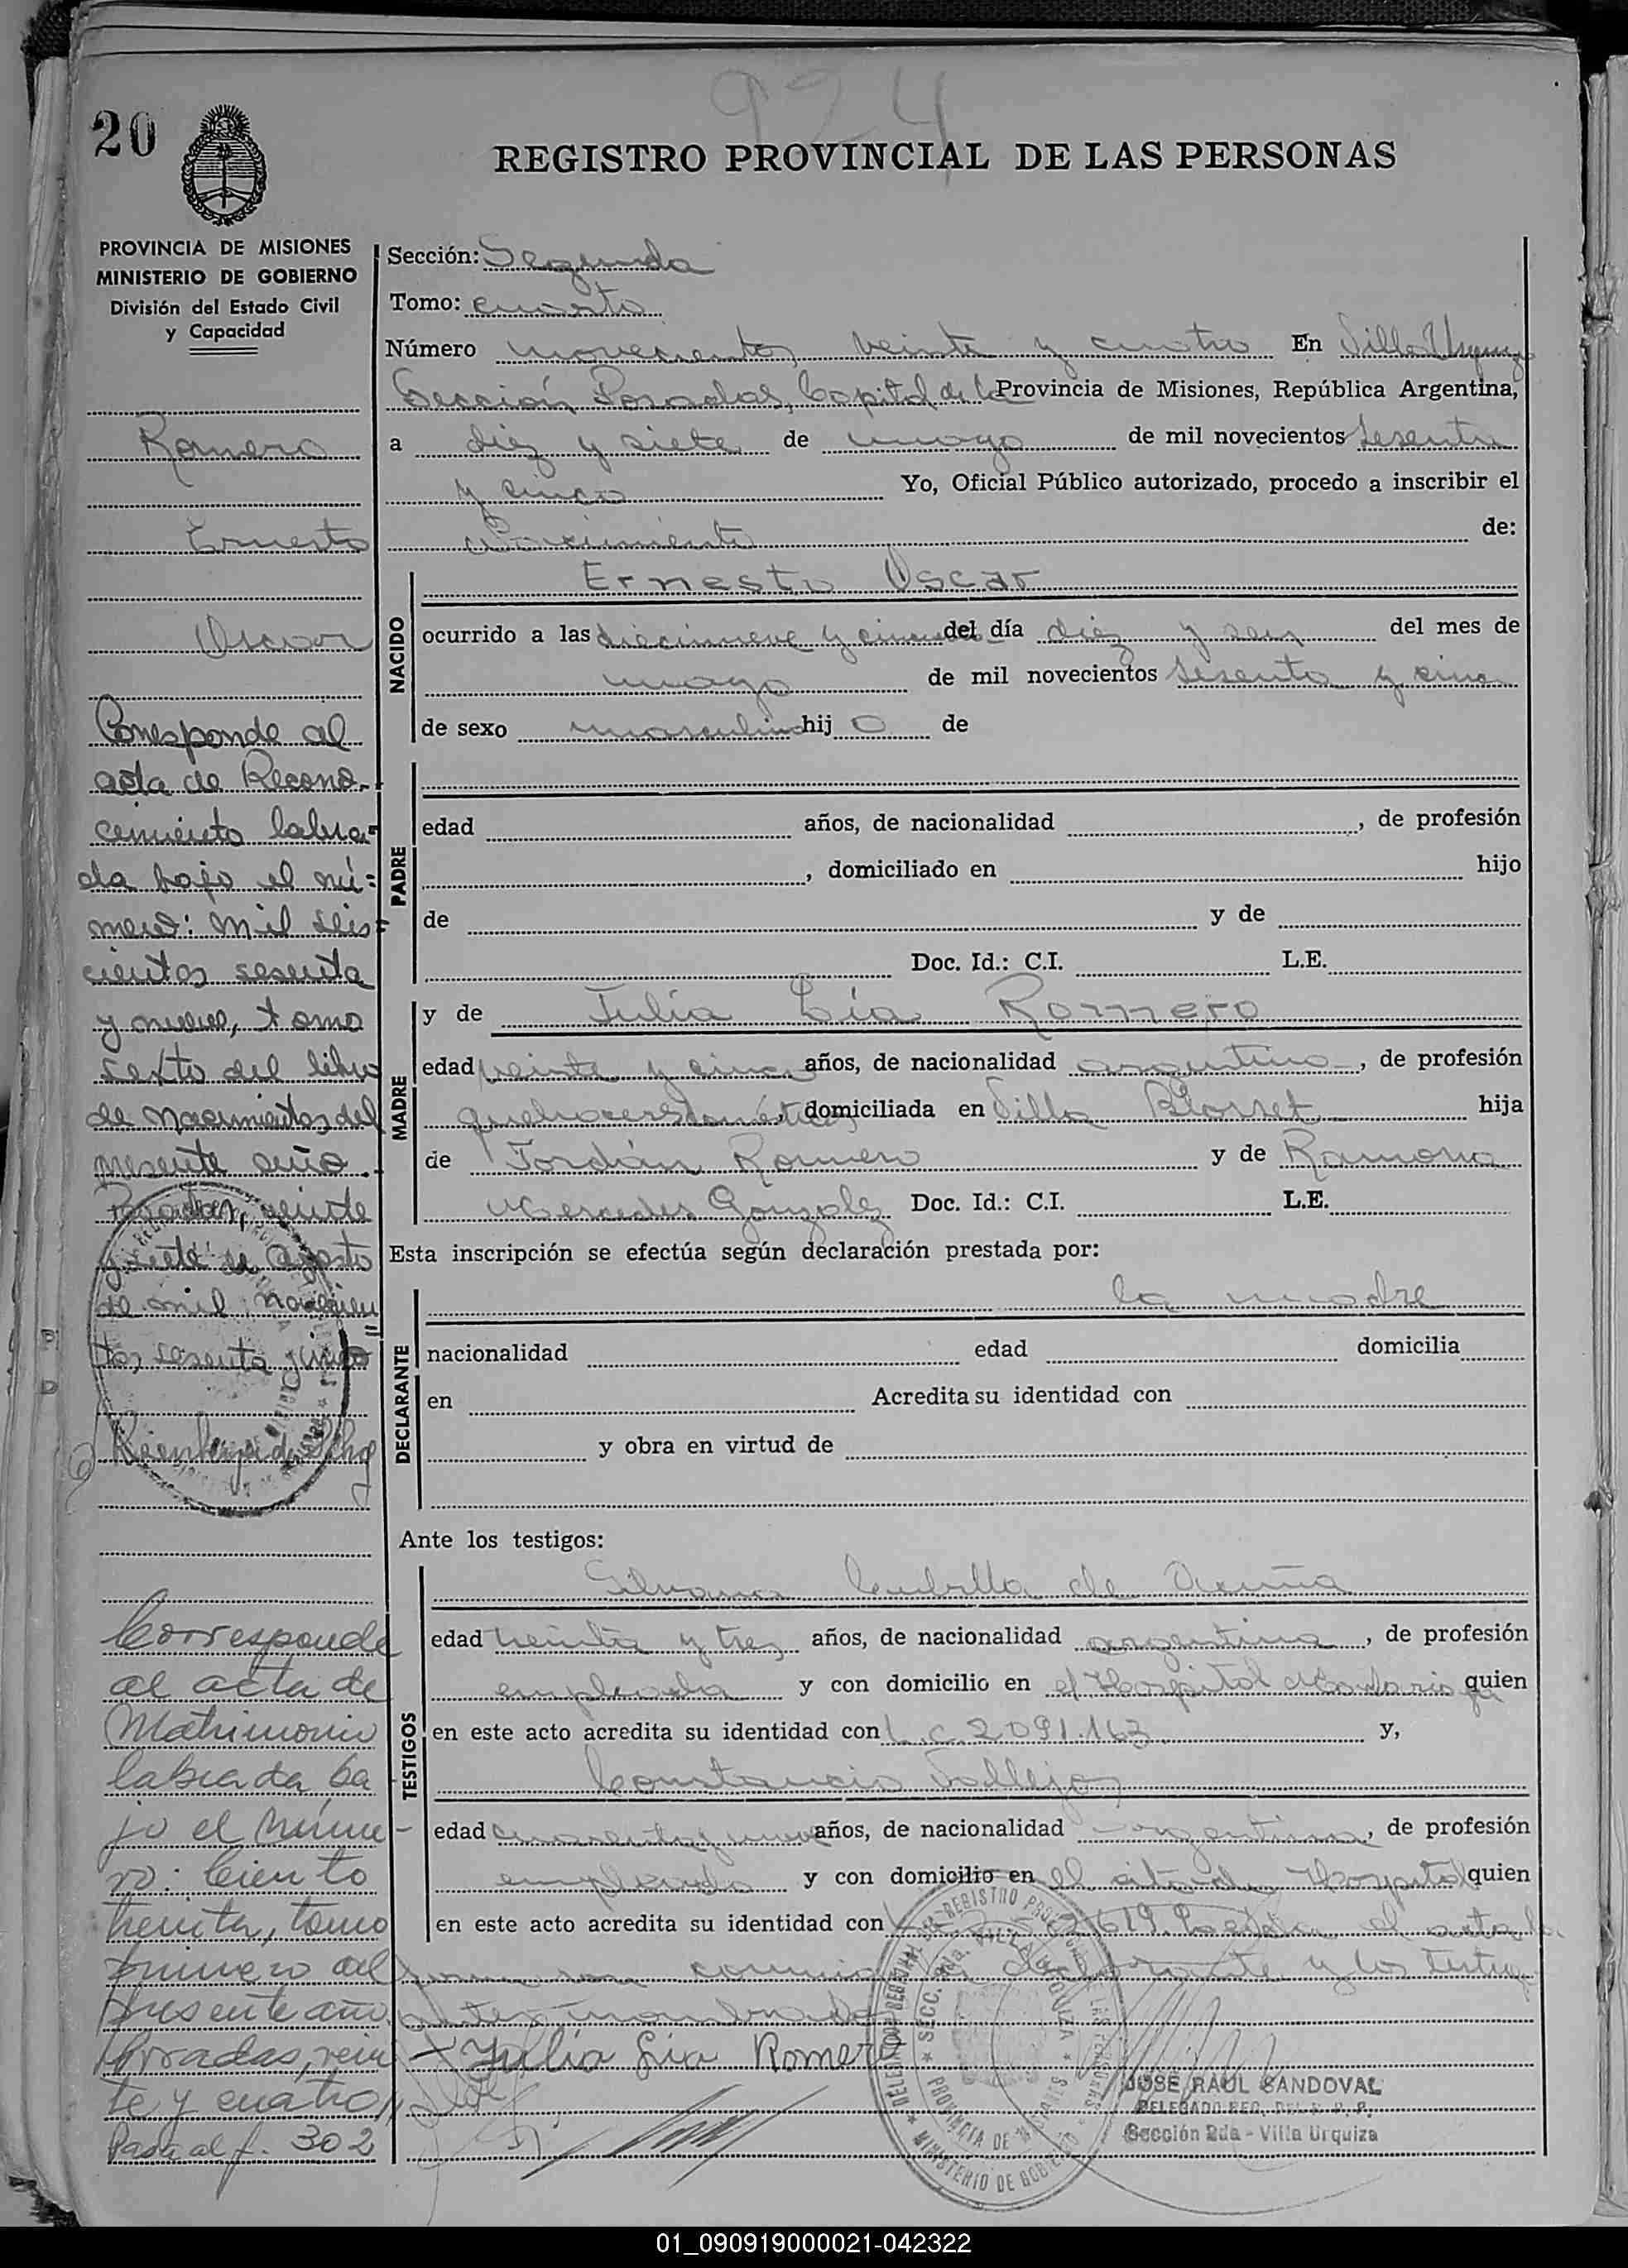 924
20
REGISTRO PROVINCIAL DE LAS PERSONAS
PROVINCIA DE MISIONES
MINISTERIO DE GOBIERNO
División del Estado Civil
y Capacidad
Romero
Ernesto
Oscar
Corresponde al
acta de Recono-
cimiento labra-
da bajo el nú-
mero: mil seis
cientos sesenta
y nueve, tomo
sexto del libro
de nacimientos del
presente año.
Posadas, veinte
y siete de agosto
de mil novecien
tos sesenta y cinco
Corresponde
al acta de
Matrimonio
labrada ba
jo el núme-
ro: Ciento
treinta, tomo
primero del
presente año.
Posadas, vein
te y cuatro
Pasa al f. 302
Sección: Segunda
Tomo: cuarto
Número novecientos veinte y cuatro En Villa Urquiza
Sección Posadas, Capital de la Provincia de Misiones, República Argentina,
a diez y siete de mayo de mil novecientos sesenta
y cinco Yo, Oficial Público autorizado, procedo a inscribir el
Nacimiento de:
NACIDO
Ernesto Oscar
ocurrido a las diecinueve y cinco del día diez y seis del mes de
mayo de mil novecientos sesenta y cinco
de sexo masculino hij o de
PADRE
edad años, de nacionalidad , de profesión
, domiciliado en hijo
de y de
Doc. Id.: C.I. L.E.
MADRE
y de Julia Lía Romero
edad veinte y cinco años, de nacionalidad argentina, de profesión
quehaceres domésticos, domiciliada en Villa Blosset hija
de Jordán Romero y de Ramona
Mercedes Gonzalez Doc. Id.: C.I. L.E.
Esta inscripción se efectúa según declaración prestada por:
DECLARANTE
la madre
nacionalidad edad domicilia
en Acredita su identidad con
y obra en virtud de
Ante los testigos:
TESTIGOS
Silvana de Acuña
edad treinta y tres años, de nacionalidad argentina, de profesión
empleada y con domicilio en el Hospital Madariaga quien
en este acto acredita su identidad con L.C. 2091.163 y,
Constancio Vallejos
edad cuarenta y nueve años, de nacionalidad argentina, de profesión
empleado y con domicilio en el citado Hospital quien
en este acto acredita su identidad con 619. Leída el acta la
firman conmigo la declarante y los testigos
antes nombrados
Julia Lia Romero
JOSE RAUL SANDOVAL
DELEGADO REG. DEL R. P. P.
Sección 2da - Villa Urquiza
01_090919000021-042322